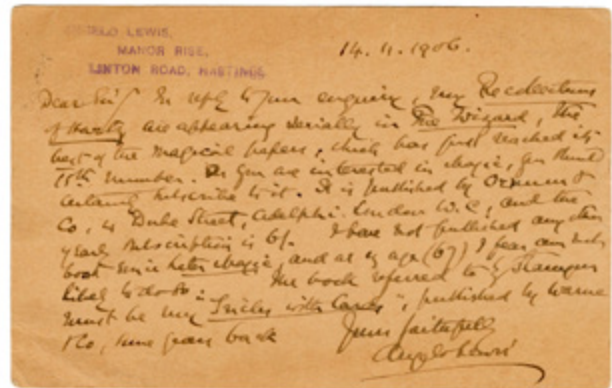 ANGELO LEWIS,
MANOR RISE,
LINTON ROAD, HASTINGS.
14. 11. 1906.
Dear Sir In reply to your enquiry, my Recollections
of Hartz are appearing serially in The Wizard, the
best of the magical papers, which has just reached its
15th number. If you are interested in magic, you should
certainly subscribe to it. It is published by
Co, 10 Duke Street, Adelphi. London W.C, and the
yearly subscription is 6/. I have not published any other
book since Later Magic, and at my age (67) I fear am not
likely to do so. The book referred to by Stanyon
must be my "Tricks with Cards", published by Warne
& Co, some years back
Yours faithfully
Angelo Lewis